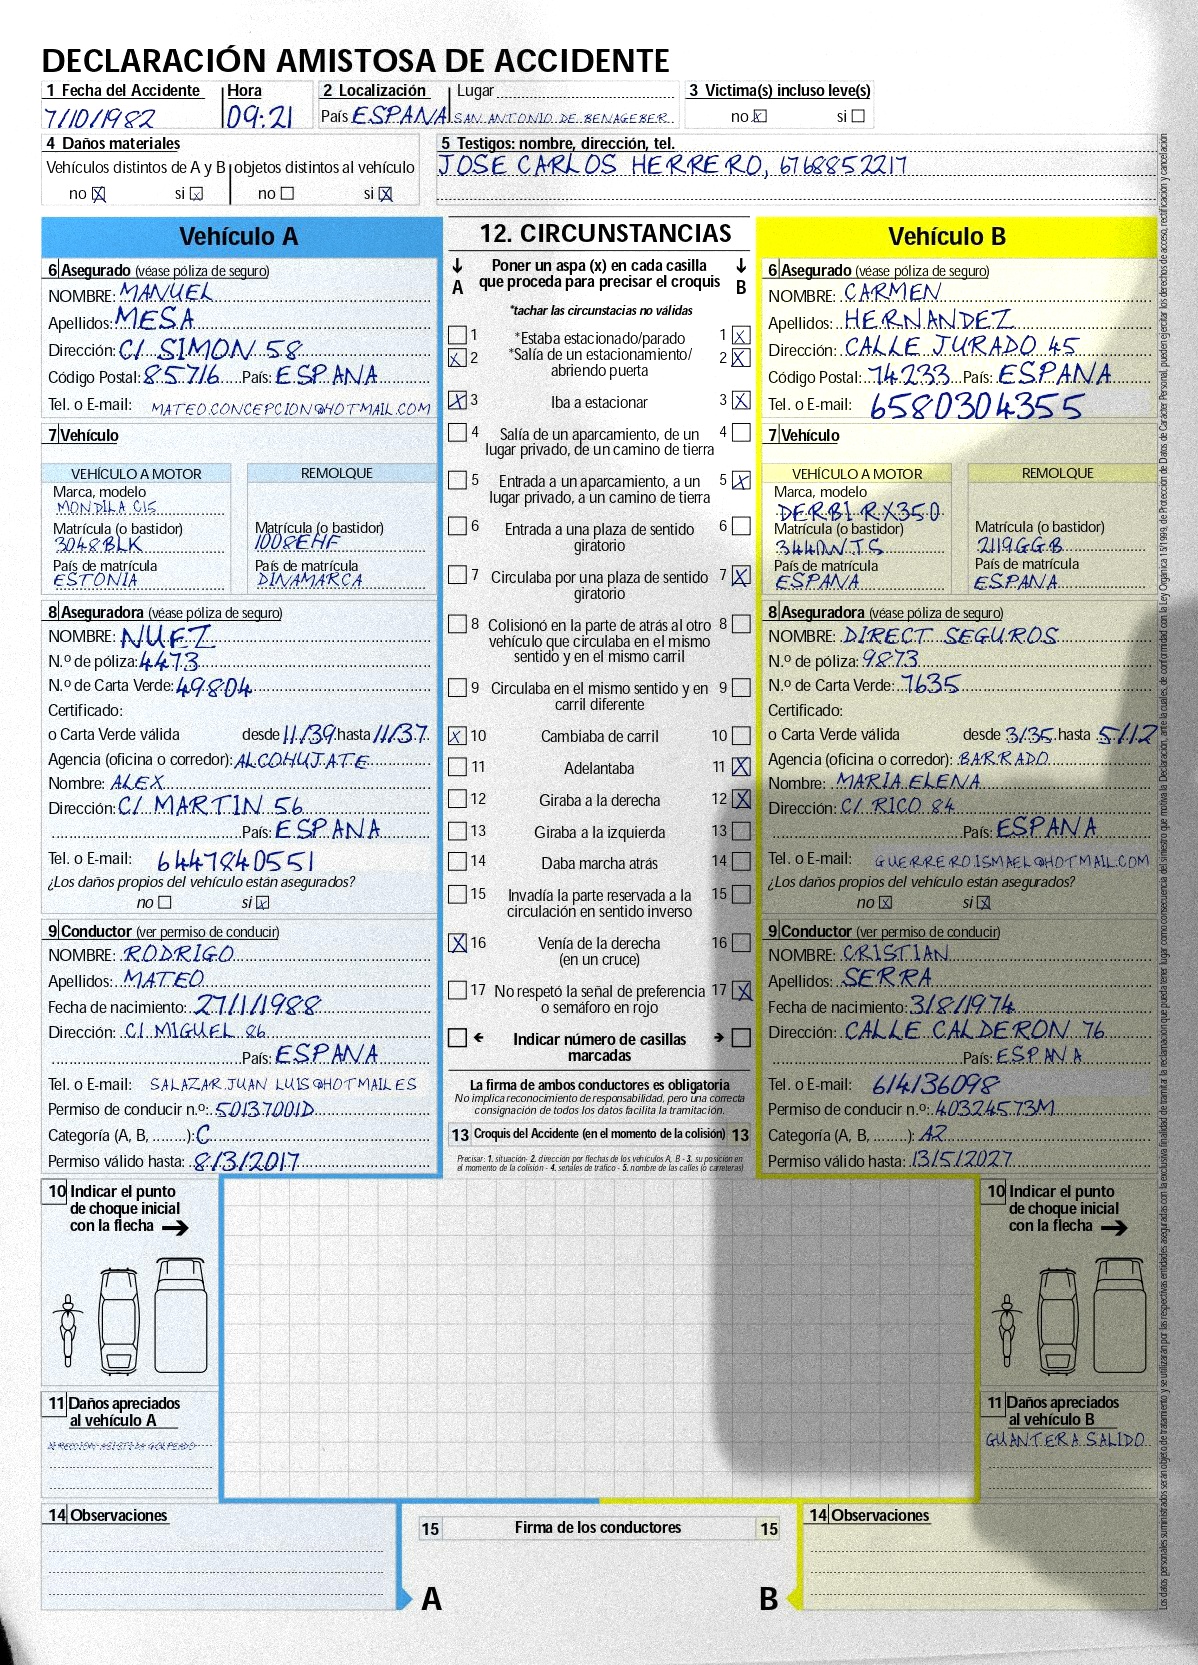 DECLARACIÓN AMISTOSA DE ACCIDENTE
1 Fecha del Accidente Hora 2 Localización Lugar 3 Victima(s) incluso leve(s)
7/10/1982 09:21 País ESPAÑA SAN ANTONIO DE BENAGEBER no X si
4 Daños materiales
Vehículos distintos de A y B objetos distintos al vehículo
no X si X no si X
5 Testigos: nombre, dirección, tel.
JOSE CARLOS HERRERO, 6768852217
Vehículo A
6 Asegurado (véase póliza de seguro)
NOMBRE: MANUEL
Apellidos: MESA
Dirección: C/ SIMON 58
Código Postal: 85716 País: ESPAÑA
Tel. o E-mail: MATEO.CONCEPCION@HOTMAIL.COM
7 Vehículo
VEHÍCULO A MOTOR REMOLQUE
Marca, modelo
MONDILA C15
Matrícula (o bastidor) Matrícula (o bastidor)
3048BLK 1008EHF
País de matrícula País de matrícula
ESTONIA DINAMARCA
8 Aseguradora (véase póliza de seguro)
NOMBRE: NUEZ
N.º de póliza: 4473
N.º de Carta Verde: 49804
Certificado:
o Carta Verde válida desde 11/39 hasta 11/37
Agencia (oficina o corredor): ALCOHUJATE
Nombre: ALEX
Dirección: C/ MARTIN 56
País: ESPAÑA
Tel. o E-mail: 6447840551
¿Los daños propios del vehículo están asegurados?
no si X
9 Conductor (ver permiso de conducir)
NOMBRE: RODRIGO
Apellidos: MATEO
Fecha de nacimiento: 27/1/1988
Dirección: C/ MIGUEL 86
País: ESPAÑA
Tel. o E-mail: SALAZAR.JUAN LUIS@HOTMAIL.ES
Permiso de conducir n.º: 50137001D
Categoría (A, B, ........): C
Permiso válido hasta: 8/3/2017
12. CIRCUNSTANCIAS
A Poner un aspa (x) en cada casilla que proceda para precisar el croquis B
*tachar las circunstacias no válidas
1 *Estaba estacionado/parado 1 X
X 2 *Salía de un estacionamiento/ 2 X
abriendo puerta
X 3 Iba a estacionar 3 X
4 Salía de un aparcamiento, de un 4
lugar privado, de un camino de tierra
5 Entrada a un aparcamiento, a un 5 X
lugar privado, a un camino de tierra
6 Entrada a una plaza de sentido 6
giratorio
7 Circulaba por una plaza de sentido 7 X
giratorio
8 Colisionó en la parte de atrás al otro 8
vehículo que circulaba en el mismo
sentido y en el mismo carril
9 Circulaba en el mismo sentido y en 9
carril diferente
X 10 Cambiaba de carril 10
11 Adelantaba 11 X
12 Giraba a la derecha 12 X
13 Giraba a la izquierda 13
14 Daba marcha atrás 14
15 Invadía la parte reservada a la 15
circulación en sentido inverso
X 16 Venía de la derecha 16
(en un cruce)
17 No respetó la señal de preferencia 17 X
o semáforo en rojo
Indicar número de casillas
marcadas
La firma de ambos conductores es obligatoria
No implica reconocimiento de responsabilidad, pero una correcta
consignación de todos los datos facilita la tramitación.
13 Croquis del Accidente (en el momento de la colisión) 13
Precisar: 1. situación- 2. dirección por flechas de los vehículos A, B - 3. su posición en
el momento de la colisión - 4. señales de tráfico - 5. nombre de las calles (o carreteras)
Vehículo B
6 Asegurado (véase póliza de seguro)
NOMBRE: CARMEN
Apellidos: HERNANDEZ
Dirección: CALLE JURADO 45
Código Postal: 74233 País: ESPAÑA
Tel. o E-mail: 6580304355
7 Vehículo
VEHÍCULO A MOTOR REMOLQUE
Marca, modelo
DERBI RX350
Matrícula (o bastidor) Matrícula (o bastidor)
3440WTS 2119GGB
País de matrícula País de matrícula
ESPAÑA ESPAÑA
8 Aseguradora (véase póliza de seguro)
NOMBRE: DIRECT SEGUROS
N.º de póliza: 9873
N.º de Carta Verde: 7635
Certificado:
o Carta Verde válida desde 3/35 hasta 5/12
Agencia (oficina o corredor): BARRADO
Nombre: MARIA ELENA
Dirección: C/ RICO 84
País: ESPAÑA
Tel. o E-mail: GUERRERO.ISMAEL@HOTMAIL.COM
¿Los daños propios del vehículo están asegurados?
no X si X
9 Conductor (ver permiso de conducir)
NOMBRE: CRISTIAN
Apellidos: SERRA
Fecha de nacimiento: 3/8/1974
Dirección: CALLE CALDERON 76
País: ESPAÑA
Tel. o E-mail: 614136098
Permiso de conducir n.º: 40324573M
Categoría (A, B, ........): A2
Permiso válido hasta: 13/5/2027
10 Indicar el punto
de choque inicial
con la flecha
11 Daños apreciados
al vehículo A
DIRECCION ASISTIDA GOLPEADO
10 Indicar el punto
de choque inicial
con la flecha
11 Daños apreciados
al vehículo B
GUANTERA SALIDO
14 Observaciones
15 Firma de los conductores 15
A B
14 Observaciones